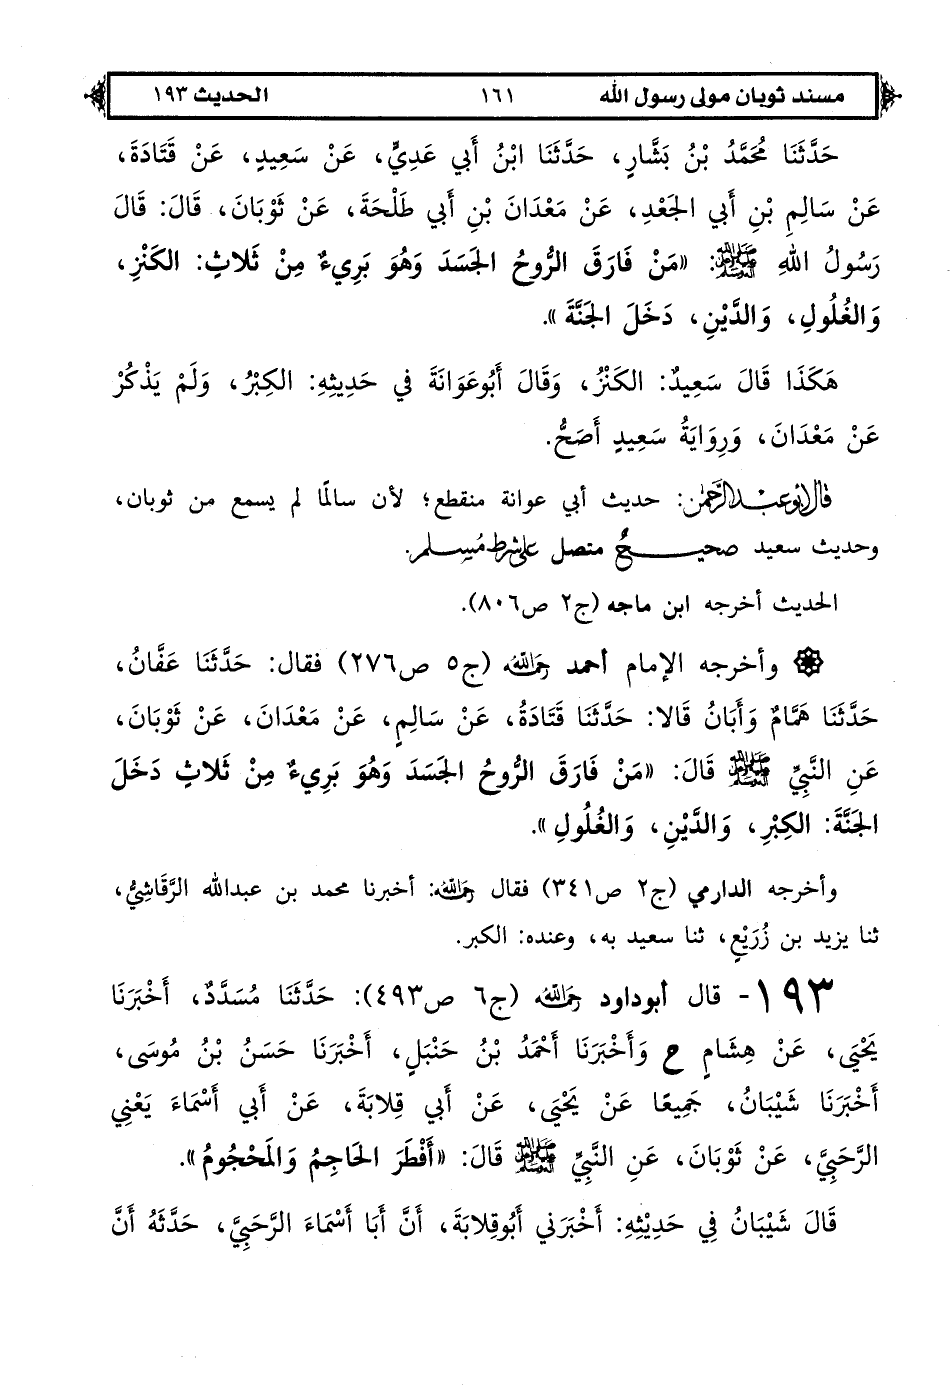 مسند ثوبان مولى رسول الله ١٦١ الحديث ١٩٣
حَدَّثَنَا مُحَمَّدُ بْنُ بَشَّارٍ، حَدَّثَنَا ابْنُ أَبي عَدِيٍّ، عَنْ سَعِيدٍ، عَنْ قَتَادَةَ،
عَنْ سَالِمِ بْنِ أَبي الجَعْدِ، عَنْ مَعْدَانَ بْنِ أَبي طَلْحَةَ، عَنْ ثَوْبَانَ، قَالَ: قَالَ
رَسُولُ اللهِ ﷺ: «مَنْ فَارَقَ الرُّوحُ الجَسَدَ وَهُوَ بَرِيءٌ مِنْ ثَلاثٍ: الكَنْزِ،
وَالغُلُولِ، وَالدَّيْنِ، دَخَلَ الجَنَّةَ».
هَكَذَا قَالَ سَعِيدٌ: الكَنْزُ، وَقَالَ أَبُوعَوَانَةَ في حَدِيثِهِ: الكِبْرُ، وَلَمْ يَذْكُرْ
عَنْ مَعْدَانَ، وَرِوَايَةُ سَعِيدٍ أَصَحُّ.
قال أبو عبد الرحمن: حديث أبي عوانة منقطع؛ لأن سالمًا لم يسمع من ثوبان،
وحديث سعيد صحيحٌ متصل على شرط مُسلم.
الحديث أخرجه ابن ماجه (ج٢ ص٨٠٦).
وأخرجه الإمام أحمد رحمه الله (ج٥ ص٢٧٦) فقال: حَدَّثَنَا عَفَّانُ،
حَدَّثَنَا هَمَّامٌ وَأَبَانُ قَالا: حَدَّثَنَا قَتَادَةُ، عَنْ سَالِمٍ، عَنْ مَعْدَانَ، عَنْ ثَوْبَانَ،
عَنِ النَّبِيِّ ﷺ قَالَ: «مَنْ فَارَقَ الرُّوحُ الجَسَدَ وَهُوَ بَرِيءٌ مِنْ ثَلاثٍ دَخَلَ
الجَنَّةَ: الكِبْرِ، وَالدَّيْنِ، وَالغُلُولِ».
وأخرجه الدارمي (ج٢ ص٣٤١) فقال رحمه الله: أخبرنا محمد بن عبدالله الرَّقَاشِيُّ،
ثنا يزيد بن زُرَيْعٍ، ثنا سعيد به، وعنده: الكبر.
١٩٣- قال أبوداود رحمه الله (ج٦ ص٤٩٣): حَدَّثَنَا مُسَدَّدٌ، أَخْبَرَنَا
يَحْيَى، عَنْ هِشَامٍ ح وَأَخْبَرَنَا أَحْمَدُ بْنُ حَنْبَلٍ، أَخْبَرَنَا حَسَنُ بْنُ مُوسَى،
أَخْبَرَنَا شَيْبَانُ، جَمِيعًا عَنْ يَحْيَى، عَنْ أَبي قِلابَةَ، عَنْ أَبي أَسْمَاءَ يَعْنِي
الرَّحَبِيَّ، عَنْ ثَوْبَانَ، عَنِ النَّبِيِّ ﷺ قَالَ: «أَفْطَرَ الحَاجِمُ وَالمَحْجُومُ».
قَالَ شَيْبَانُ فِي حَدِيْثِهِ: أَخْبَرَني أَبُوقِلابَةَ، أَنَّ أَبَا أَسْمَاءَ الرَّحَبِيَّ، حَدَّثَهُ أَنَّ